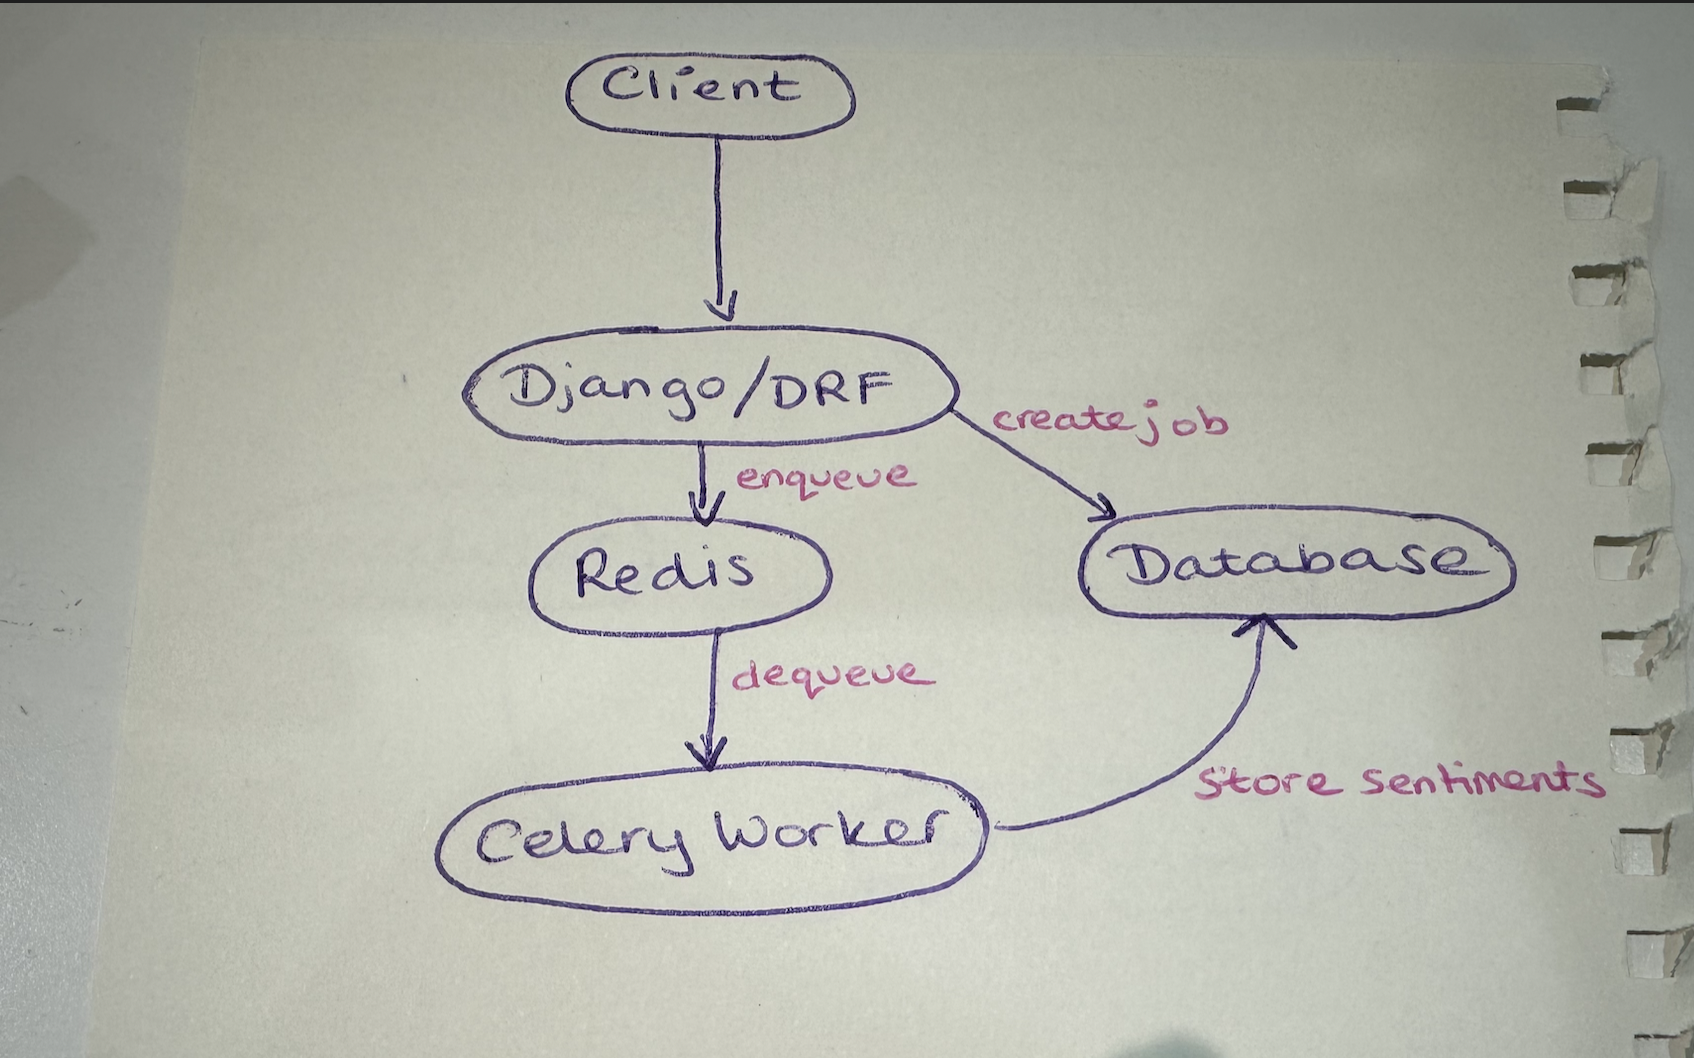 Client
Django/DRF
create job
enqueue
Redis
Database
dequeue
store sentiments
Celery Worker